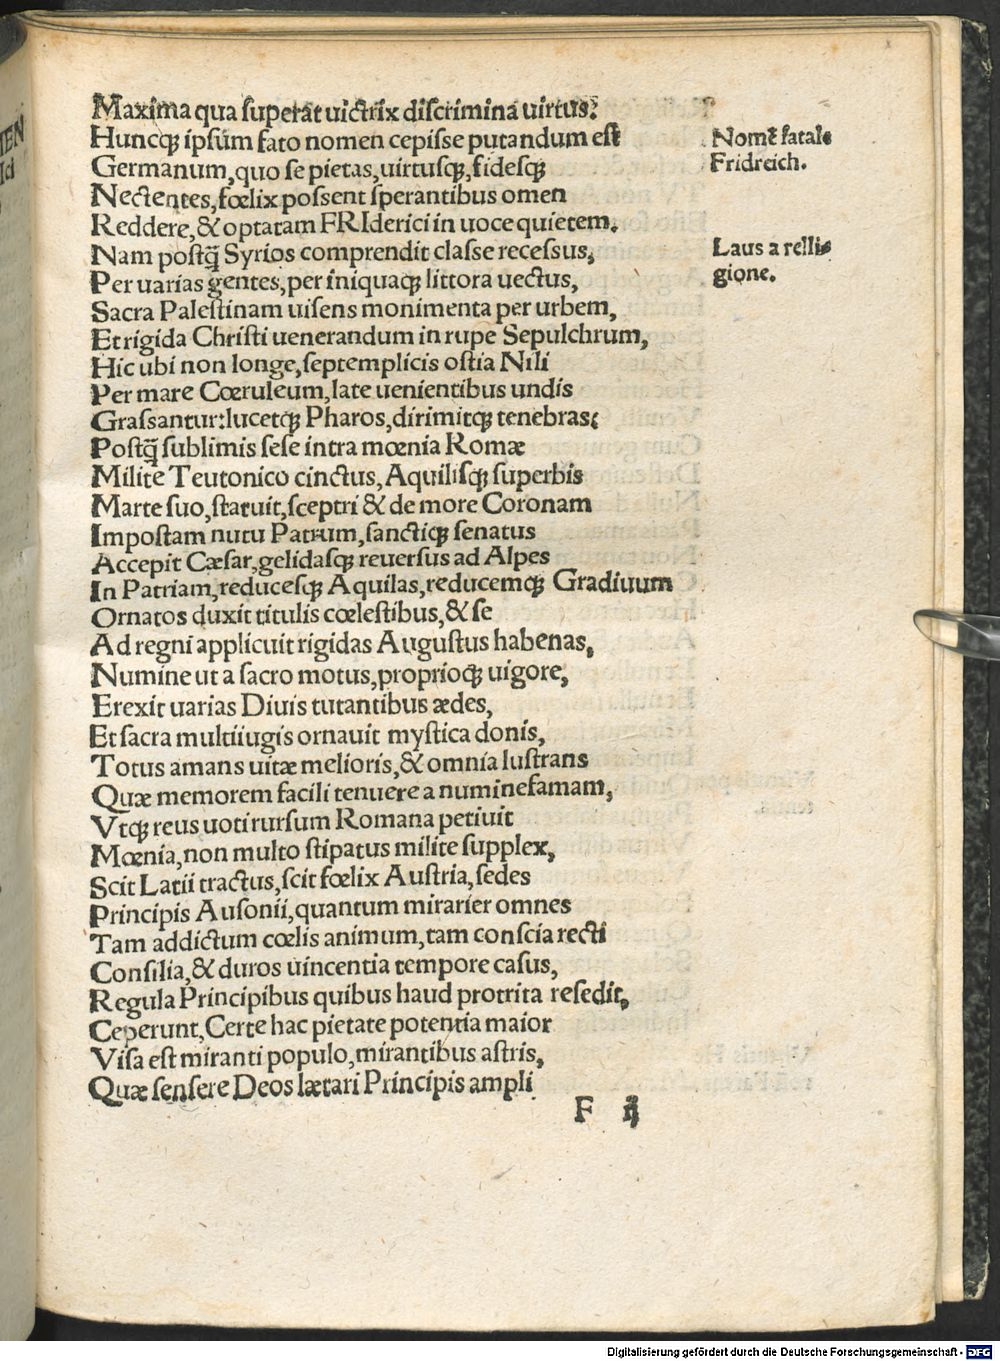 Maxima qua superat uictrix discrimina uirtus?
Huncqꝫ ipsum fato nomen cepisse putandum est
Nomē fatale
Germanum, quo se pietas, uirtusqꝫ, fidesqꝫ
Fridreich.
Nectentes, fœlix possent sperantibus omen
Reddere, & optatam FRIderici in uoce quietem.
Nam postq̃ Syrios comprendit classe recessus,
Laus a relli-
Per uarias gentes, per iniquaqꝫ littora uectus,
gione.
Sacra Palestinam uisens monimenta per urbem,
Et rigida Christi uenerandum in rupe Sepulchrum,
Hic ubi non longe, septemplicis ostia Nili
Per mare Cœruleum, late uenientibus undis
Grassantur: lucetqꝫ Pharos, dirimitqꝫ tenebras:
Postq̃ sublimis sese intra mœnia Romæ
Milite Teutonico cinctus, Aquilisqꝫ superbis
Marte suo, statuit, sceptri & de more Coronam
Impostam nutu Patrum, sanctiqꝫ senatus
Accepit Cæsar, gelidasqꝫ reuersus ad Alpes
In Patriam, reducesqꝫ Aquilas, reducemqꝫ Gradiuum
Ornatos duxit titulis cœlestibus, & se
Ad regni applicuit rigidas Augustus habenas,
Numine ut a sacro motus, proprioqꝫ uigore,
Erexit uarias Diuis tutantibus ædes,
Et sacra multiiugis ornauit mystica donis,
Totus amans uitæ melioris, & omnia lustrans
Quæ memorem facili tenuere a numine famam,
Vtqꝫ reus uoti rursum Romana petiuit
Mœnia, non multo stipatus milite supplex,
Scit Latii tractus, scit fœlix Austria, sedes
Principis Ausonii, quantum mirarier omnes
Tam addictum cœlis animum, tam conscia recti
Consilia, & duros uincentia tempore casus,
Regula Principibus quibus haud protrita resedit,
Ceperunt, Certe hac pietate potentia maior
Visa est miranti populo, mirantibus astris,
Quæ sensere Deos lætari Principis ampli
F ij
Digitalisierung gefördert durch die Deutsche Forschungsgemeinschaft - DFG